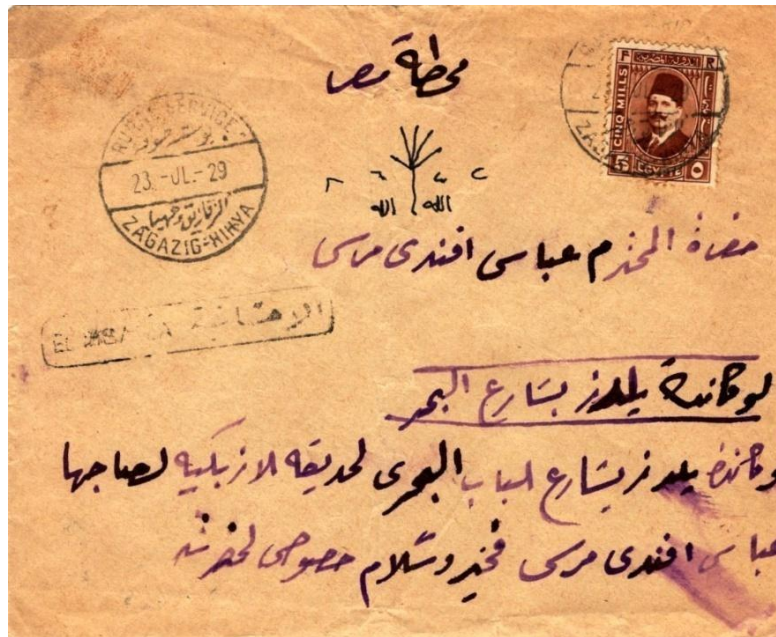 محطة مصر
RURAL SERVICE
بوسته
23.-JL.-29
الزقازيق وههيا
ZAGAZIG-HIHYA
CINQ MILLS
5 EGYPTE ٥
٢ ٤ ٦
الله الله
حضرة المحترم عباس افندى مرسى
لوكاندة يلدز بشارع البحر
لوكاندة يلدز بشارع الباب البحرى لحديقه الازبكيه لصاحبها
عباس افندى مرسى فخير وسلام خصوصى لحضرته